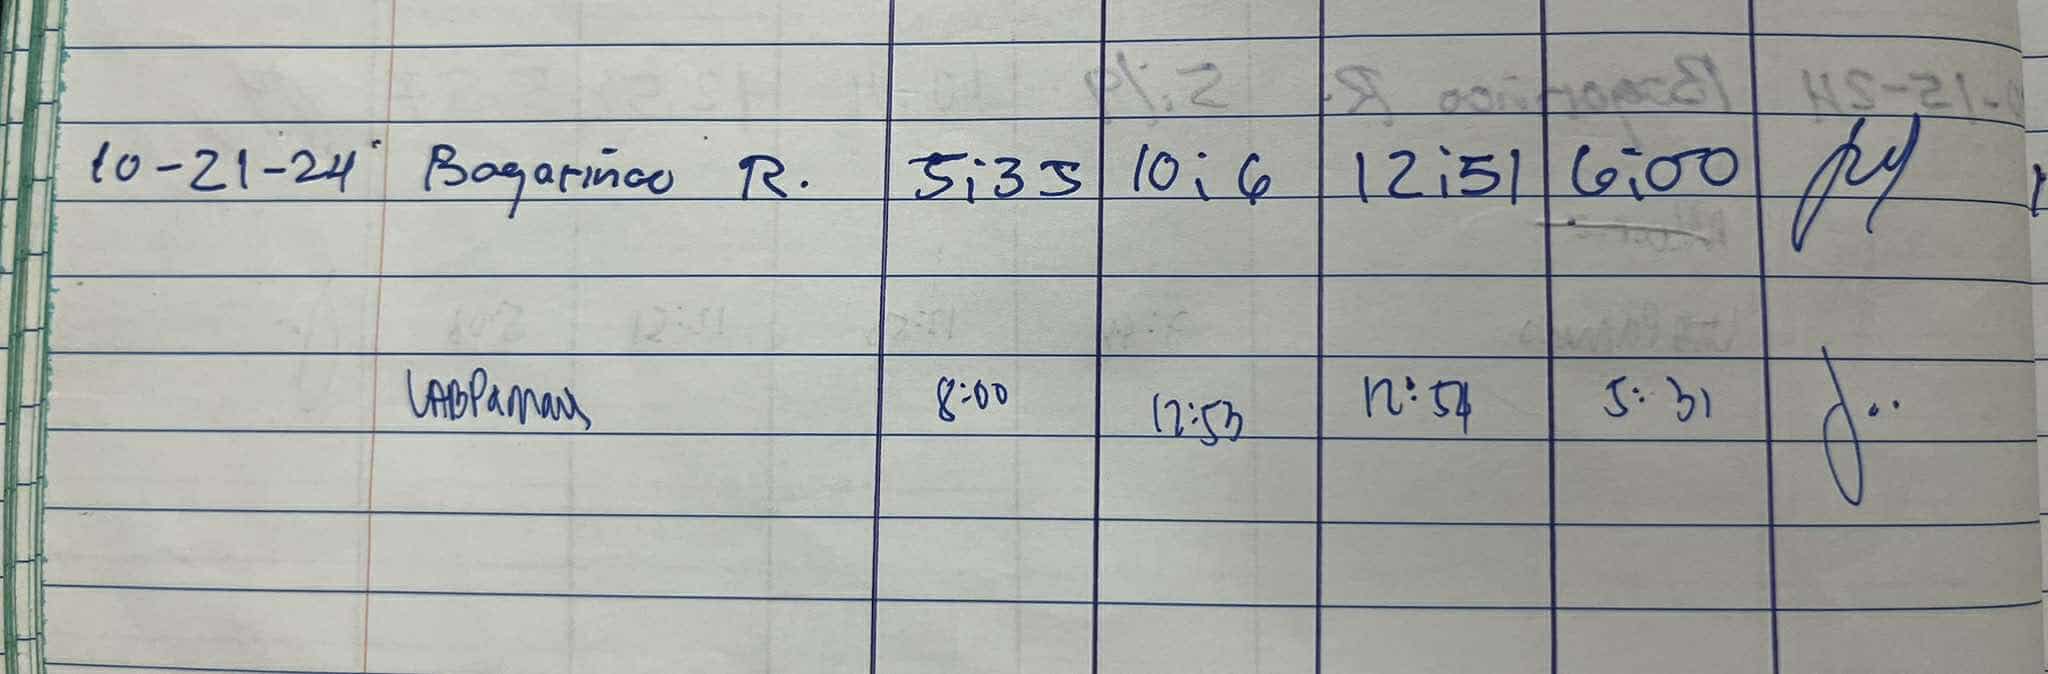 10-21-24 Bagarinao R. 5:35 10:6 12:51 6:00
LABPamaus 8:00 12:53 12:54 5:31